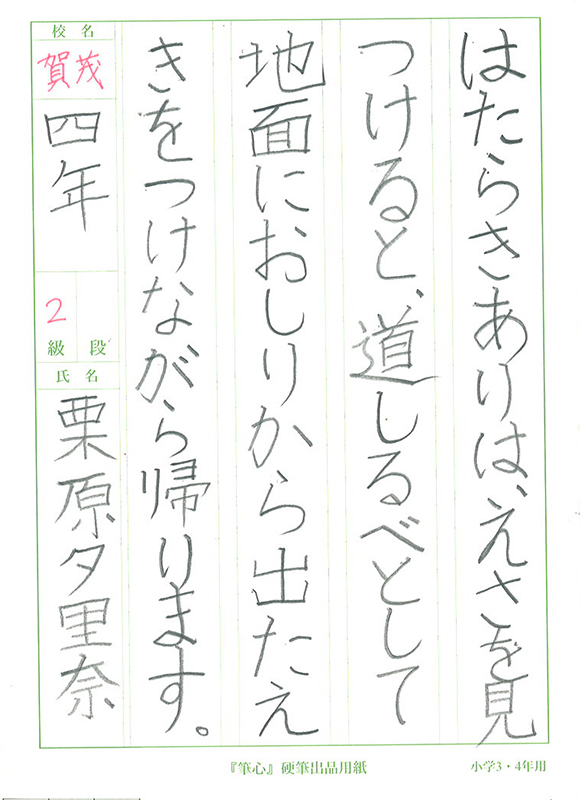 はたらきありは、えさを見
つけると、道しるべとして
地面におしりから出たえ
きをつけながら帰ります。
校名
賀茂
四年
2
級 段
氏名
栗原夕里奈
『筆心』硬筆出品用紙
小学3・4年用